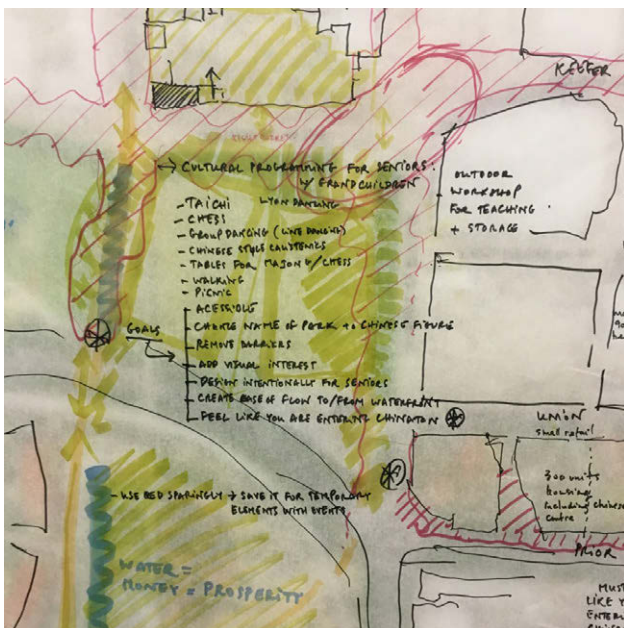 KEEFER
→ CULTURAL PROGRAMMING FOR SENIORS
w/ GRANDCHILDREN
- TAICHI
LYON DANCING
- CHESS
- GROUP DANCING (LINE DANCING)
- CHINESE STYLE CALISTENICS
- TABLES FOR MAJONG/CHESS
- WALKING
- PICNIC
- ACESSIBLE
- CHANGE NAME OF PARK to CHINESE FIGURE
- REMOVE BARRIERS
GOALS
- ADD VISUAL INTEREST
- DESIGN INTENTIONALLY FOR SENIORS
- CREATE EASE OF FLOW TO/FROM WATERFRONT
- FEEL LIKE YOU ARE ENTERING CHINATON
OUTDOOR
WORKSHOP
FOR TEACHING
+ STORAGE
UNION
small retail
300 units
housing
including chinese
centre
PRIOR
- USE RED SPARINGLY → SAVE IT FOR TEMPORARY
ELEMENTS WITH EVENTS
WATER =
MONEY = PROSPERITY
MUST
LIKE Y
ENTER